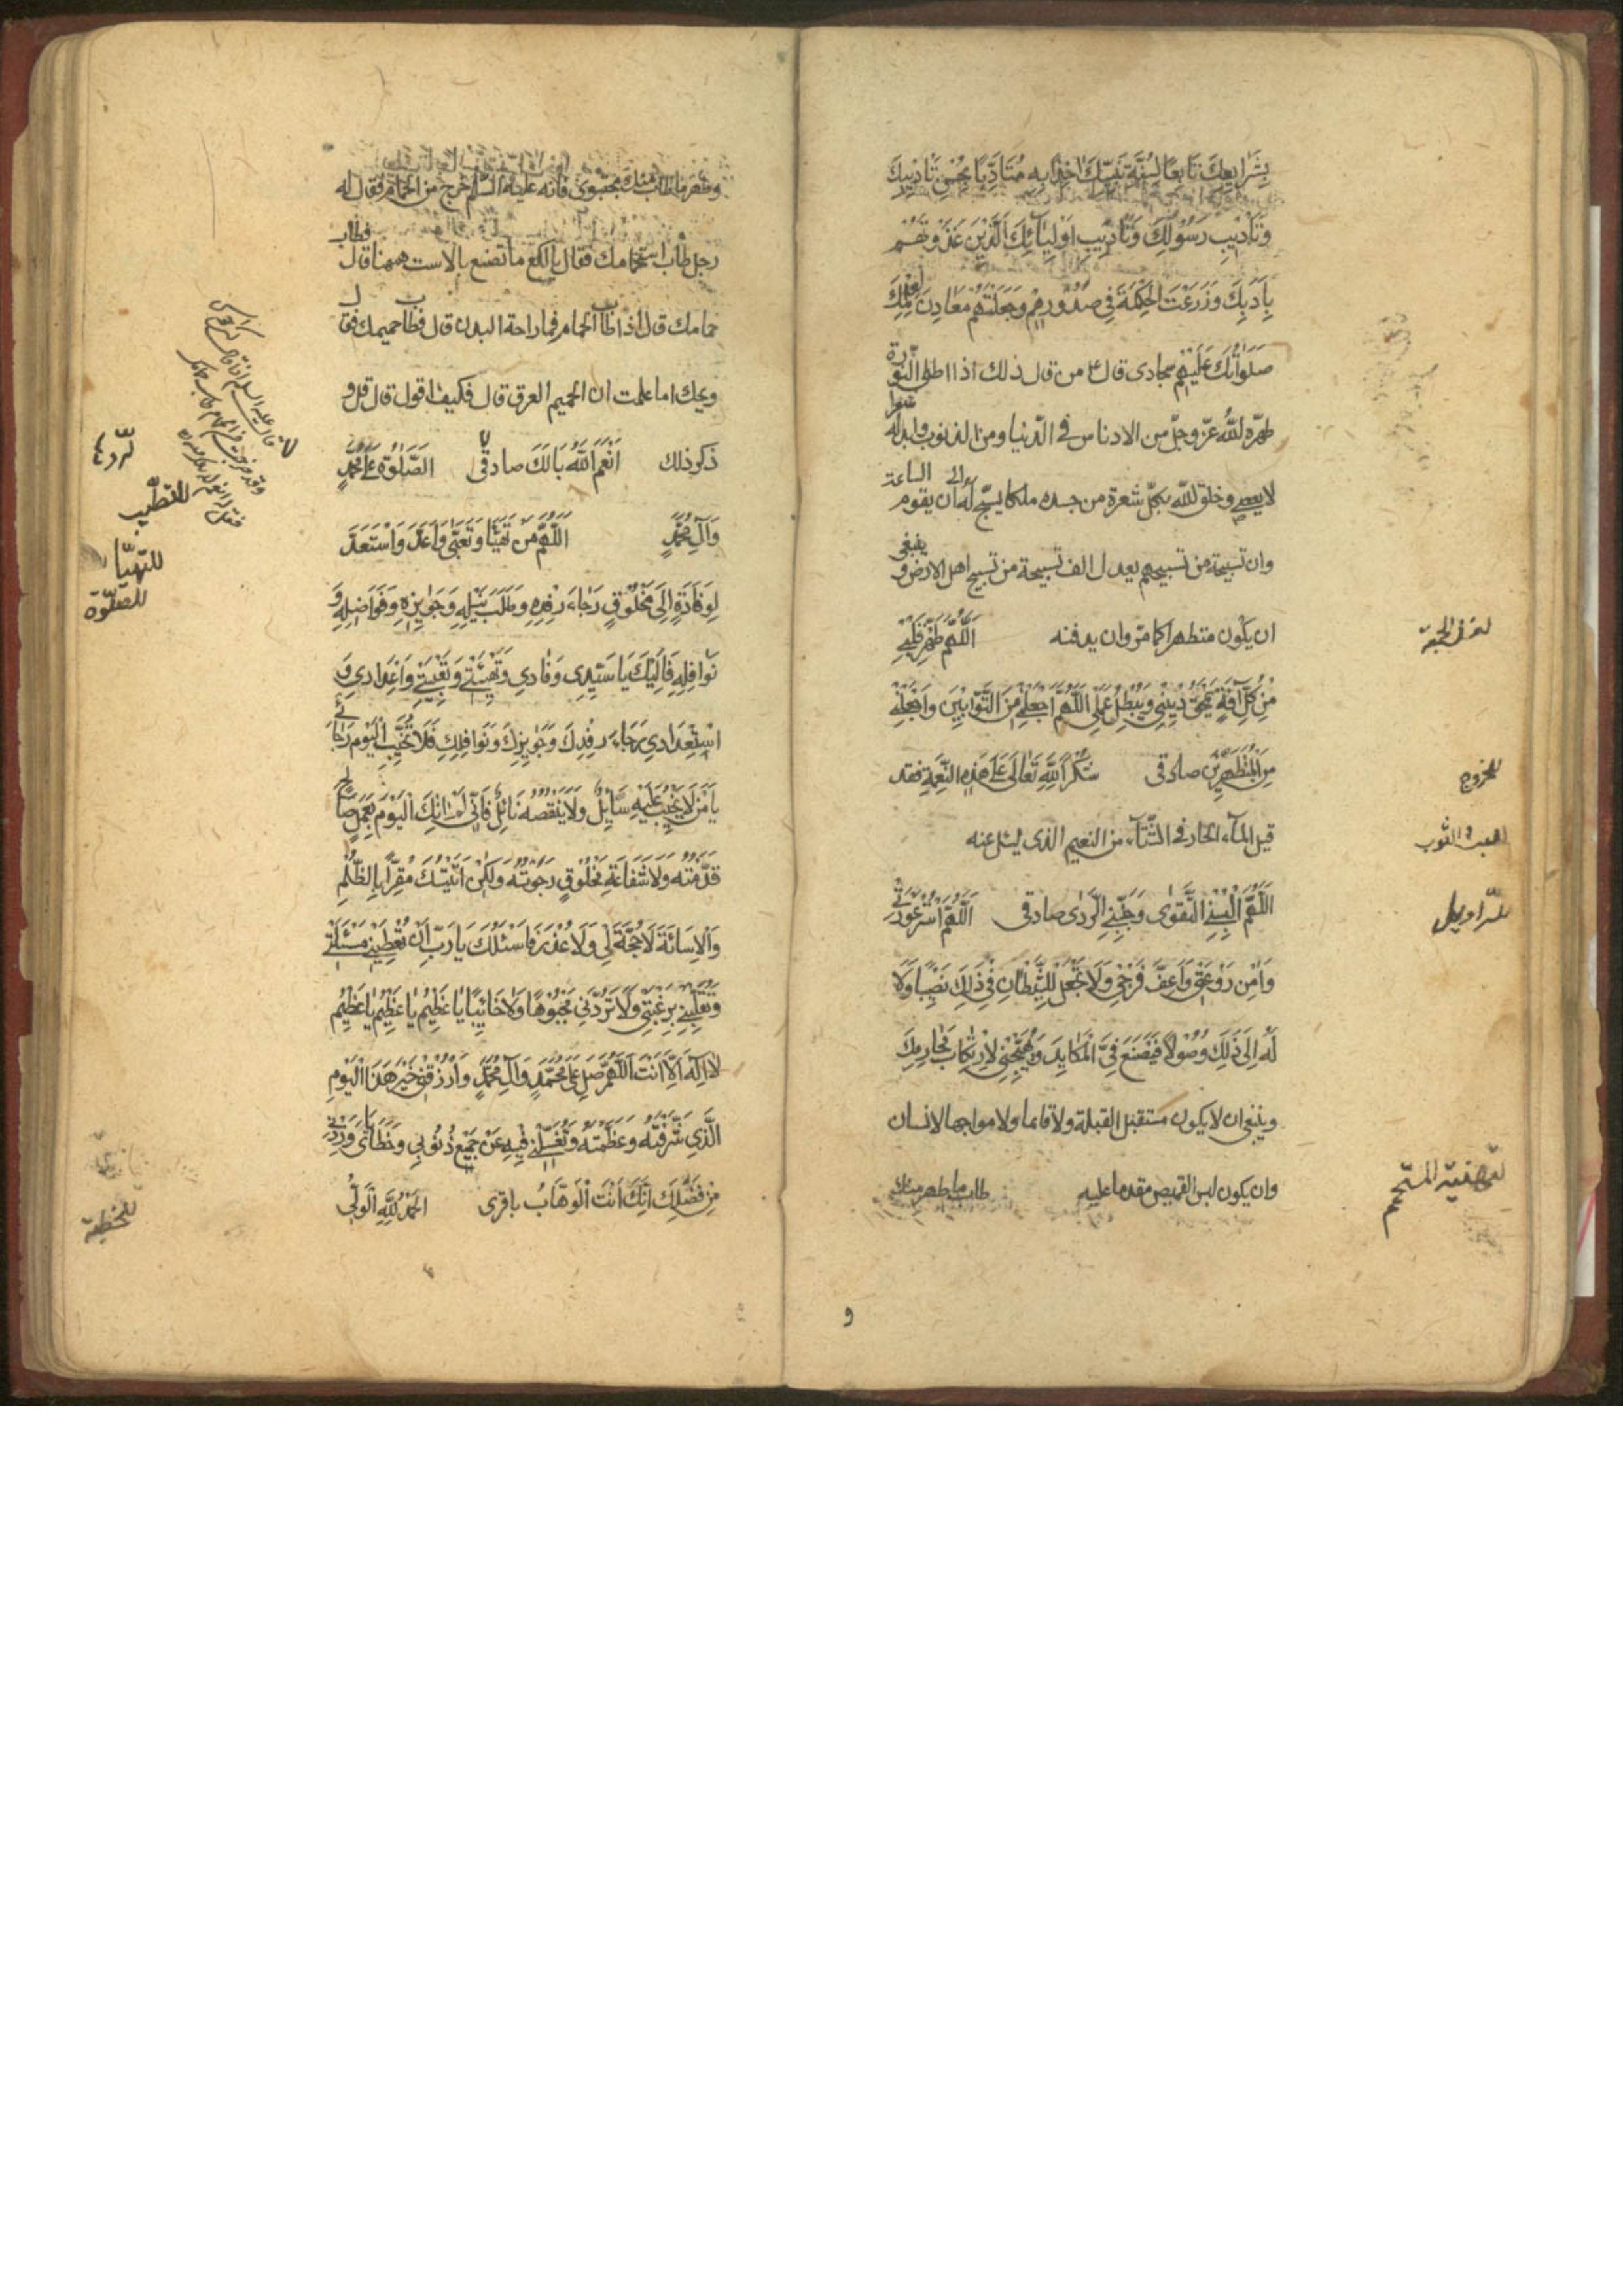 بِشَرَايِعِكَ تَابِعًا لِسُنَّةِ نَبِيِّكَ اخِذًا بِهِ مُتَأَدِّبًا بِحُسْنِ تَأْدِيبِكَ
وَتَأْدِيبِ رَسُولِكَ وَتَأْدِيبِ اَوْلِيَآئِكَ الَّذِينَ غَذَوْتَهُمْ
بِاَدَبِكَ وَزَرَعْتَ الْحِكْمَةَ فِي صُدُورِهِمْ وَجَعَلْتَهُمْ مَعَادِنَ لِعِلْمِكَ
صَلَوَاتُكَ عَلَيْهِمْ سجادى قال ع من قال ذلك اذا اطلى بالنورة
طهّره الله عزّ وجلّ من الادناس فى الدّنيا ومن الذنوب وابدله شعرا
لا يعصى وخلق لله بكلّ شعرة من جسده ملكا يسبّح له الى ان يقوم الساعة
وان تسبيحة من تسبيحهم يعدل الف تسبيحة من تسبيح اهل الارض و ينبغى
ان يكون متطهرا كما مرّ وان يدفنه اَللّٰهُمَّ طَهِّرْ قَلْبِي
لغسل الجمعة
مِنْ كُلِّ آفَةٍ تَمْحَقُ دِينِي وَيُبْطِلُ عَمَلِي اَللّٰهُمَّ اجْعَلْنِي مِنَ التَّوَّابِينَ وَاجْعَلْنِي
مِنَ الْمُتَطَهِّرِينَ صادقى شُكْرًا لِلّٰهِ تَعَالَى عَلَى هٰذِهِ النِّعْمَةِ فقد
للخروج
قيل المآء الحار فى الشتآء من النعيم الذى يسئل عنه
للبس الثوب
اَللّٰهُمَّ اَلْبِسْنِي التَّقْوٰى وَجَنِّبْنِي الرَّدٰى صادقى اَللّٰهُمَّ اسْتُرْ عَوْرَتِي
للسّراويل
وَاٰمِنْ رَوْعَتِي وَاَعِفَّ فَرْجِي وَلَا تَجْعَلْ لِلشَّيْطَانِ فِي ذٰلِكَ نَصِيبًا وَلَا
لَهُ اِلَى ذٰلِكَ وُصُولًا فَيَصْنَعَ فِيَّ الْمَكَايِدَ وَيُهَيِّجَنِي لِارْتِكَابِ مَحَارِمِكَ
وينبغى ان لا يكون مستقبل القبلة ولا قائما ولا مواجها لانسان
وان يكون لبس القميص مقدما عليه طاب ما طهر منك
لتهنية المستحم
وطهر ما طاب منك مجتبوى فانه عليه السّلام خرج من الحمام فقال له
رجل طاب استحمامك فقال يا لكع ما تصنع بالاست ههنا قال فطاب
حمامك قال اذا طاب الحمام فما راحة البدن قال فطاب حميمك فقال
ويحك اما علمت ان الحميم العرق قال فكيف اقول قال قل و
ذكر ذلك اَنْعَمَ اللّٰهُ بَالَكَ صادقى الصَّلٰوةُ عَلَى مُحَمَّدٍ
للردّ
للتطيّب
وَآلِ مُحَمَّدٍ اَللّٰهُمَّ مَنْ تَهَيَّأَ وَتَعَبَّى وَاَعَدَّ وَاسْتَعَدَّ
للتهيّأ
للصلوة
لِوِفَادَةٍ اِلَى مَخْلُوقٍ رَجَاءَ رِفْدِهِ وَطَلَبَ نَيْلِهِ وَجَوَائِزِهِ وَفَوَاضِلِهِ وَ
نَوَافِلِهِ فَاِلَيْكَ يَا سَيِّدِي وَفَادِي وَتَهْيِئَتِي وَتَعْبِيَتِي وَاِعْدَادِي وَ
اسْتِعْدَادِي رَجَاءَ رِفْدِكَ وَجَوَايِزِكَ وَنَوَافِلِكَ فَلَا تُخَيِّبِ الْيَوْمَ رَجَائِي
يَا مَنْ لَا يَخِيبُ عَلَيْهِ سَائِلٌ وَلَا يَنْقُصُهُ نَائِلٌ فَاِنِّي لَمْ اٰتِكَ الْيَوْمَ بِعَمَلٍ صَالِحٍ
قَدَّمْتُهُ وَلَا شَفَاعَةِ مَخْلُوقٍ رَجَوْتُهُ وَلٰكِنْ اَتَيْتُكَ مُقِرًّا بِالظُّلْمِ
وَالْاِسَائَةِ لَا حُجَّةَ لِي وَلَا عُذْرَ فَاَسْئَلُكَ يَا رَبِّ اَنْ تُعْطِيَنِي مَسْئَلَتِي
وَتَقْلِبَنِي بِرَغْبَتِي وَلَا تَرُدَّنِي مَجْبُوهًا وَلَا خَائِبًا يَا عَظِيمُ يَا عَظِيمُ يَا عَظِيمُ
لَا اِلٰهَ اِلَّا اَنْتَ اَللّٰهُمَّ صَلِّ عَلَى مُحَمَّدٍ وَآلِ مُحَمَّدٍ وَارْزُقْنِي خَيْرَ هٰذَا الْيَوْمِ
الَّذِي شَرَّفْتَهُ وَعَظَّمْتَهُ وَتَغْسِلُنِي فِيهِ عَنْ جَمِيعِ ذُنُوبِي وَخَطَايَايَ وَزِدْنِي
مِنْ فَضْلِكَ اِنَّكَ اَنْتَ الْوَهَّابُ باقرى اَلْحَمْدُ لِلّٰهِ الْوَلِيِّ
للخطبة
و